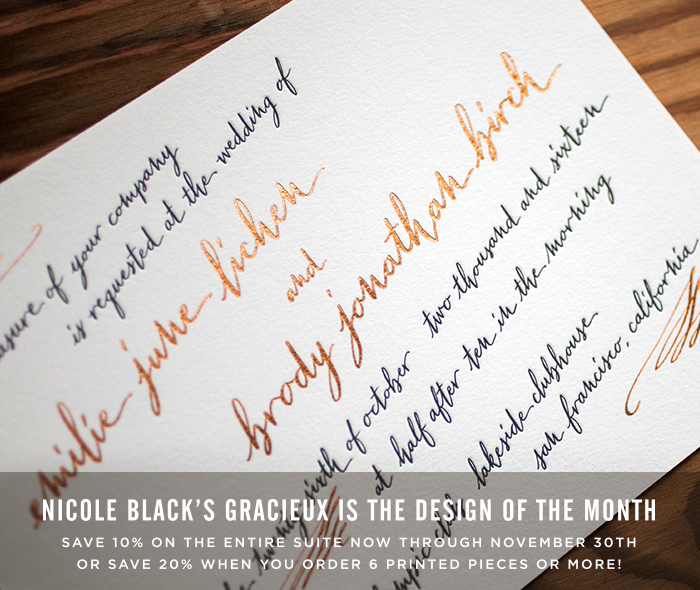 asure of your company
is requested at the wedding of
emilie june lichen
and
brody jonathan birch
sixth of october two thousand and sixteen
at half after ten in the morning
lakeside clubhouse
san francisco, california
NICOLE BLACK'S GRACIEUX IS THE DESIGN OF THE MONTH
SAVE 10% ON THE ENTIRE SUITE NOW THROUGH NOVEMBER 30TH
OR SAVE 20% WHEN YOU ORDER 6 PRINTED PIECES OR MORE!